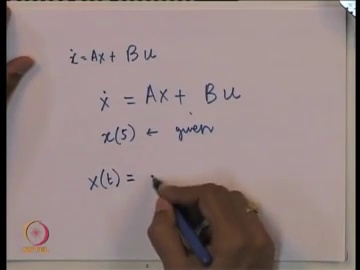 ẋ = Ax + Bu
ẋ = Ax + Bu
x(5) ← given
x(t) =